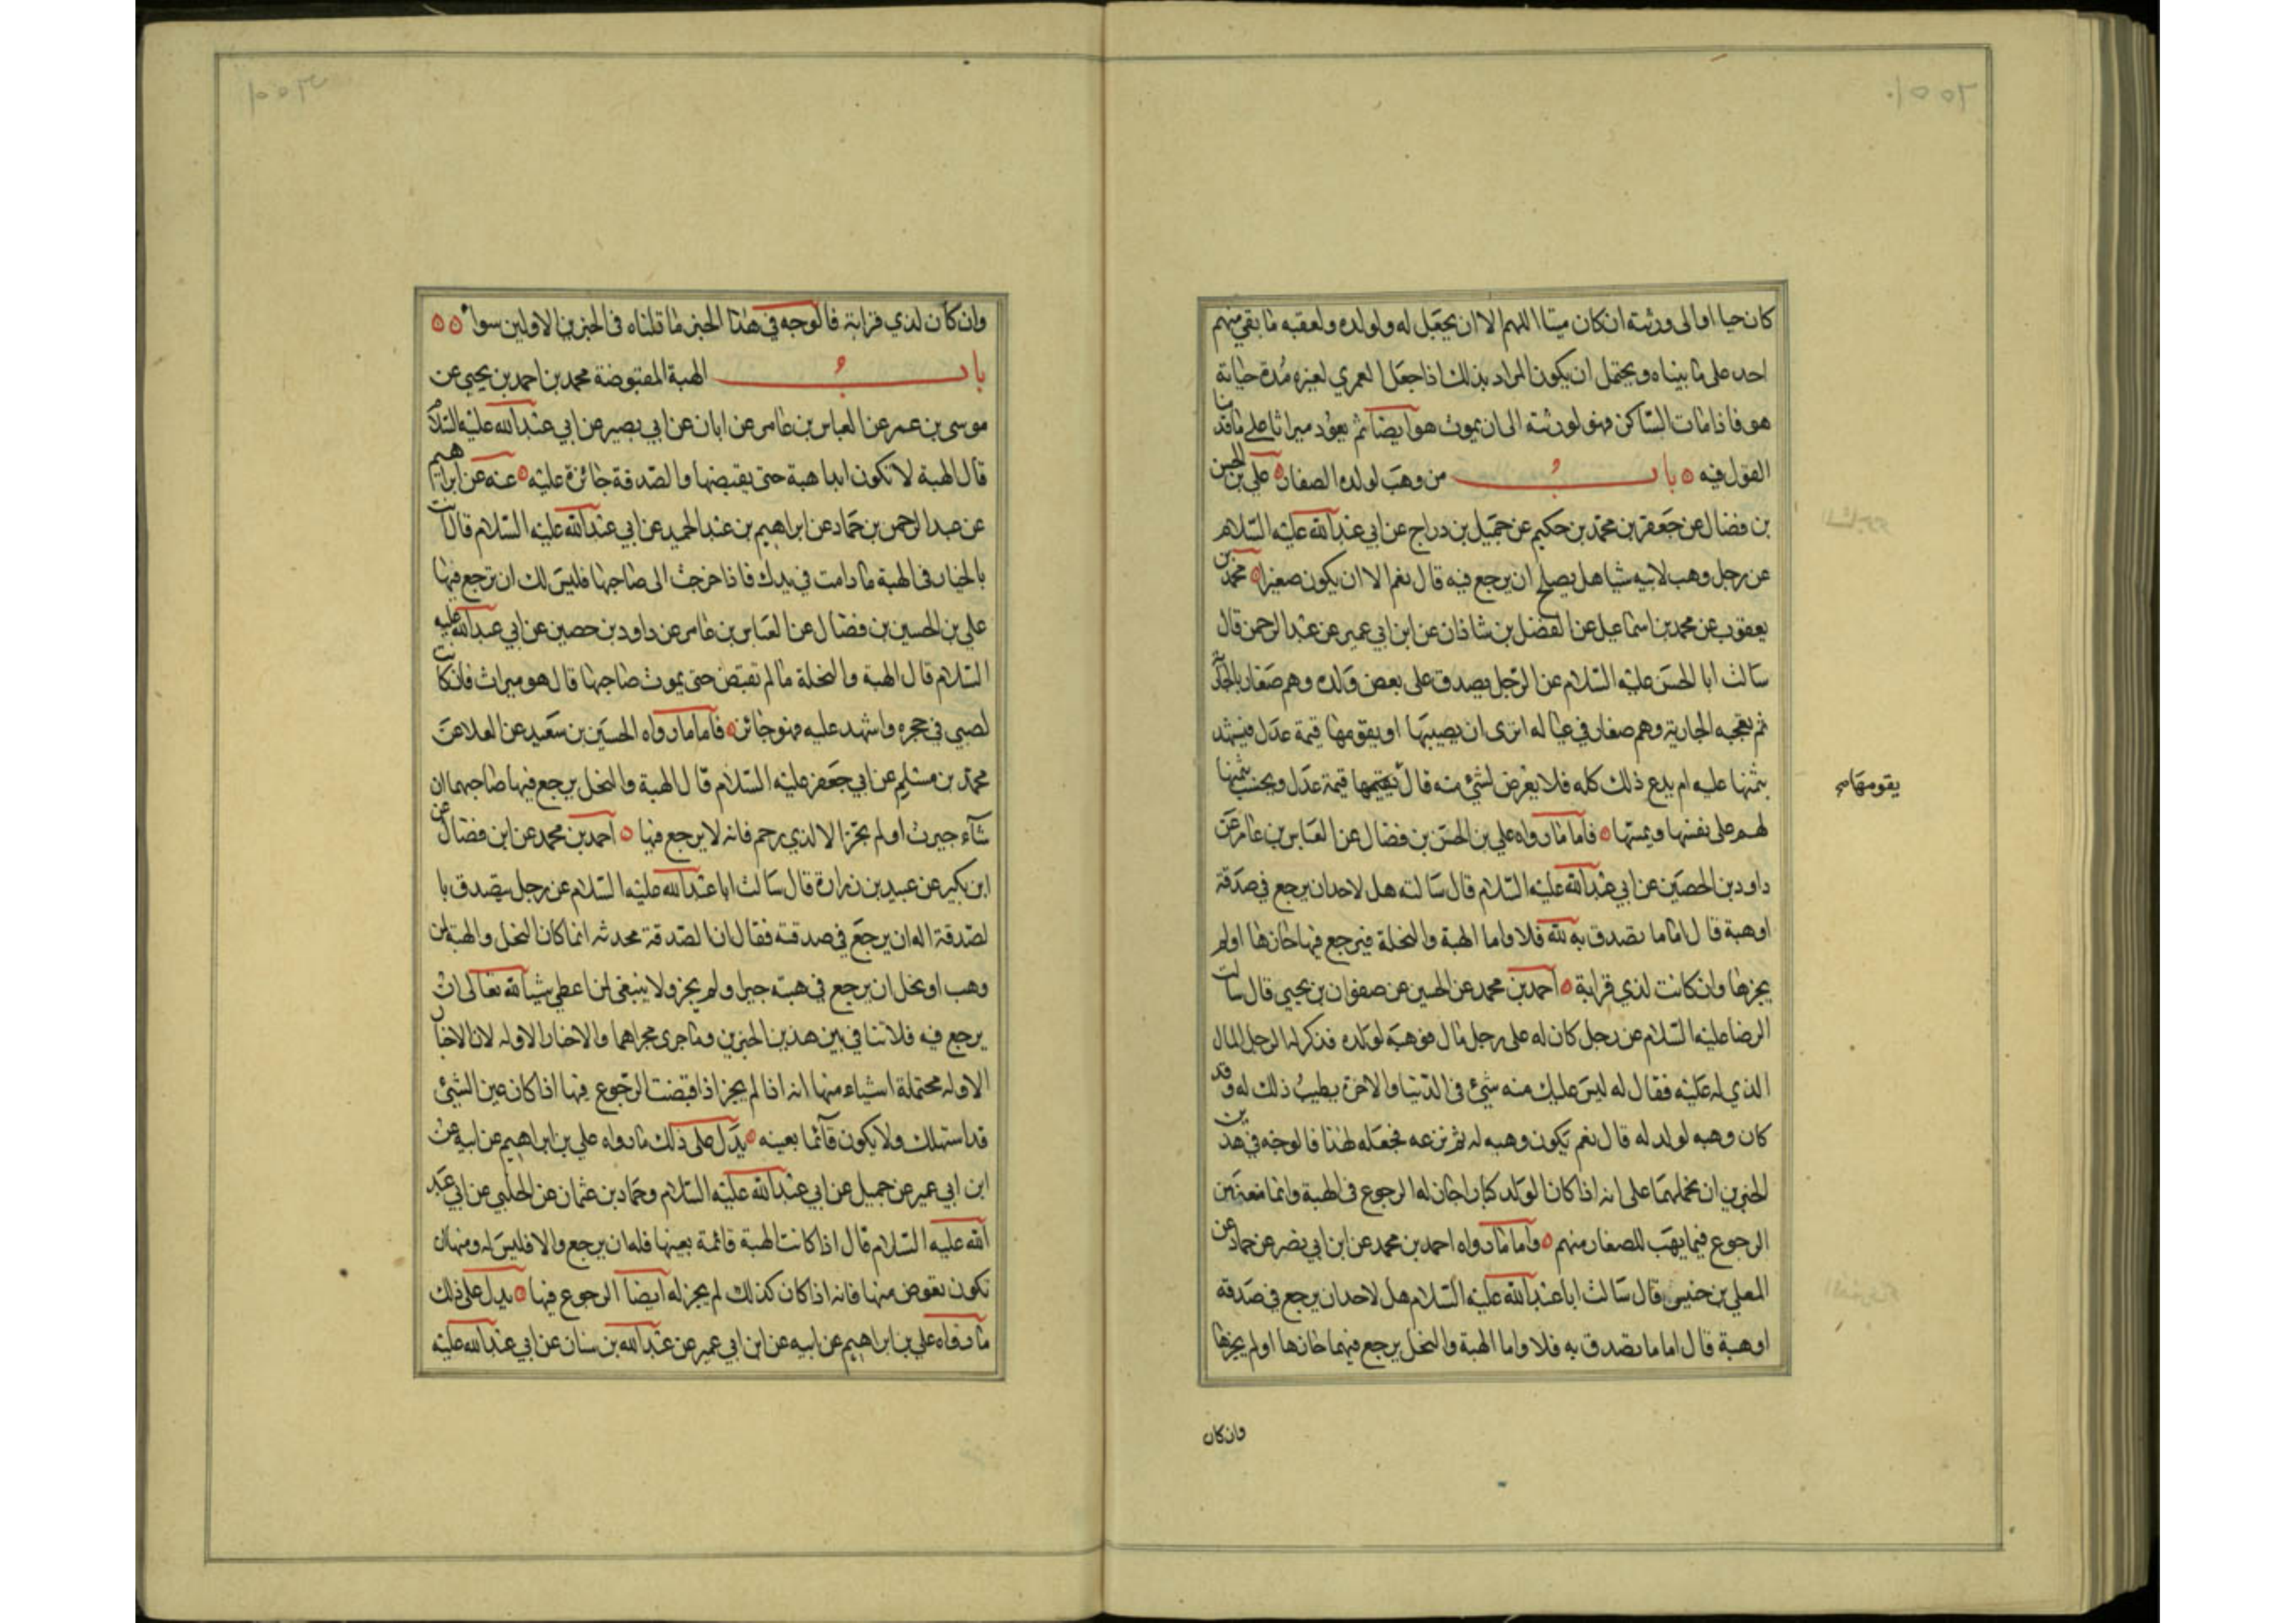 كان حيا اوالى ورثته ان كان ميتا اللهم الا ان يجعل له ولولده ولعقبه ما بقي منهم
احد على ما بيناه ويحتمل ان يكون المراد بذلك اذا جعل العمري لغيره مدة حياته
هو فاذا مات الساكن فهو لورثته الى ان يموت هو ايضا ثم يعود ميراثا على ما قدمنا
القول فيه باب من وهب لولده الصغار علي بن الحسن
بن فضال عن جعفر بن محمد بن حكيم عن جميل بن دراج عن ابي عبد الله عليه السلام
عن رجل وهب لابنه شيا هل يصلح ان يرجع فيه قال نعم الا ان يكون صغيرا محمد بن
يعقوب عن محمد بن اسماعيل عن الفضل بن شاذان عن ابن ابي عمير عن عبد الرحمن قال
سالت ابا الحسن عليه السلام عن الرجل يصدق على بعض ولده وهم صغار بالجارية
ثم يعجبه الجارية وهم صغار في عياله اترى ان يصيبها او يقومها قيمة عدل فيشهد
بثمنها عليه ام يدع ذلك كله فلا يعرض لشئ منه قال يقيمها قيمة عدل ويحتسب بثمنها
يقومها
لهم على نفسها ويمسها فاما ما رواه علي بن الحسن بن فضال عن العباس بن عامر عن
داود بن الحصين عن ابي عبد الله عليه السلام قال سالته هل لاحد ان يرجع في صدقة
او هبة قال اما ما تصدق به لله فلا واما الهبة والنحلة فيرجع فيها حازها اولم
يجزها وان كانت لذي قرابة احمد بن محمد عن الحسين عن صفوان بن يحيي قال سالت
الرضا عليه السلام عن رجل كان له على رجل مال فوهبه لولده فذكر له الرجل المال
الذي له عليه فقال له ليس عليك منه شئ في الدنيا والاخرة يطيب ذلك له وقد
كان وهبه لولد له قال نعم يكون وهبه له ثم نزعه فجعله لهذا فالوجه في هذين
الخبرين ان نحملهما على انه اذا كان الولد كبارا جاز له الرجوع في الهبة وانما منعنا من
الرجوع فيما يهب للصغار منهم واما ما رواه احمد بن محمد عن ابن ابي نصر عن حماد عن
المعلي بن خنيس قال سالت ابا عبد الله عليه السلام هل لاحد ان يرجع في صدقة
او هبة قال اما ما تصدق به فلا واما الهبة والنحل يرجع فيهما حازها اولم يجزها
وان كان
وان كان لذي قرابة فالوجه في هذا الخبر ما قلناه في الخبرين الاولين سواء
باب الهبة المقبوضة محمد بن احمد بن يحيي عن
موسى بن عمر عن العباس بن عامر عن ابان عن ابي بصير عن ابي عبد الله عليه السلام
قال الهبة لا تكون ابدا هبة حتى يقبضها والصدقة جائزة عليه عنه عن ابراهيم
عن عبد الرحمن بن حماد عن ابراهيم بن عبد الحميد عن ابي عبد الله عليه السلام قال انت
بالخيار في الهبة ما دامت في يدك فاذا خرجت الى صاحبها فليس لك ان ترجع فيها
علي بن الحسين بن فضال عن العباس بن عامر عن داود بن حصين عن ابي عبد الله عليه
السلام قال الهبة والنحلة ما لم تقبض حتى يموت صاحبها قال هو ميراث فان كانت
لصبي في حجره واشهد عليه فهو جائز فاما ما رواه الحسين بن سعيد عن العلا عن
محمد بن مسلم عن ابي جعفر عليه السلام قال الهبة والنحل يرجع فيها صاحبهما ان
شاء حيزت اولم تجز الا لذي رحم فانه لا يرجع فيها احمد بن محمد عن ابن فضال عن
ابن بكير عن عبيد بن زرارة قال سالت ابا عبد الله عليه السلام عن رجل يتصدق با
لصدقة اله ان يرجع في صدقته فقال ان الصدقة محدثه انما كان النحل والهبة لمن
وهب او نحل ان يرجع في هبته حيز ولم يجز ولا ينبغي لمن اعطى شيا لله تعالى ان
يرجع فيه فلا تنافي بين هذين الخبرين وما جرى مجراهما والاخبار الاوله لان الاخبار
الاوله محتملة اشياء منها انه اذا لم يجز اذا قبضت الرجوع فيها اذا كان عين الشئ
قد استهلك ولا يكون قائما بعينه يدل على ذلك ما رواه علي بن ابراهيم عن ابيه عن
ابن ابي عمير عن جميل عن ابي عبد الله عليه السلام وحماد بن عثمان عن الحلبي عن ابي عبد
الله عليه السلام قال اذا كانت الهبة قائمة بعينها فله ان يرجع والا فليس له ومنها ان
تكون يقوض منها فانه اذا كان كذلك لم يجز له ايضا الرجوع فيها يدل على ذلك
ما رواه علي بن ابراهيم عن ابيه عن ابن ابي عمير عن عبد الله بن سنان عن ابي عبد الله عليه